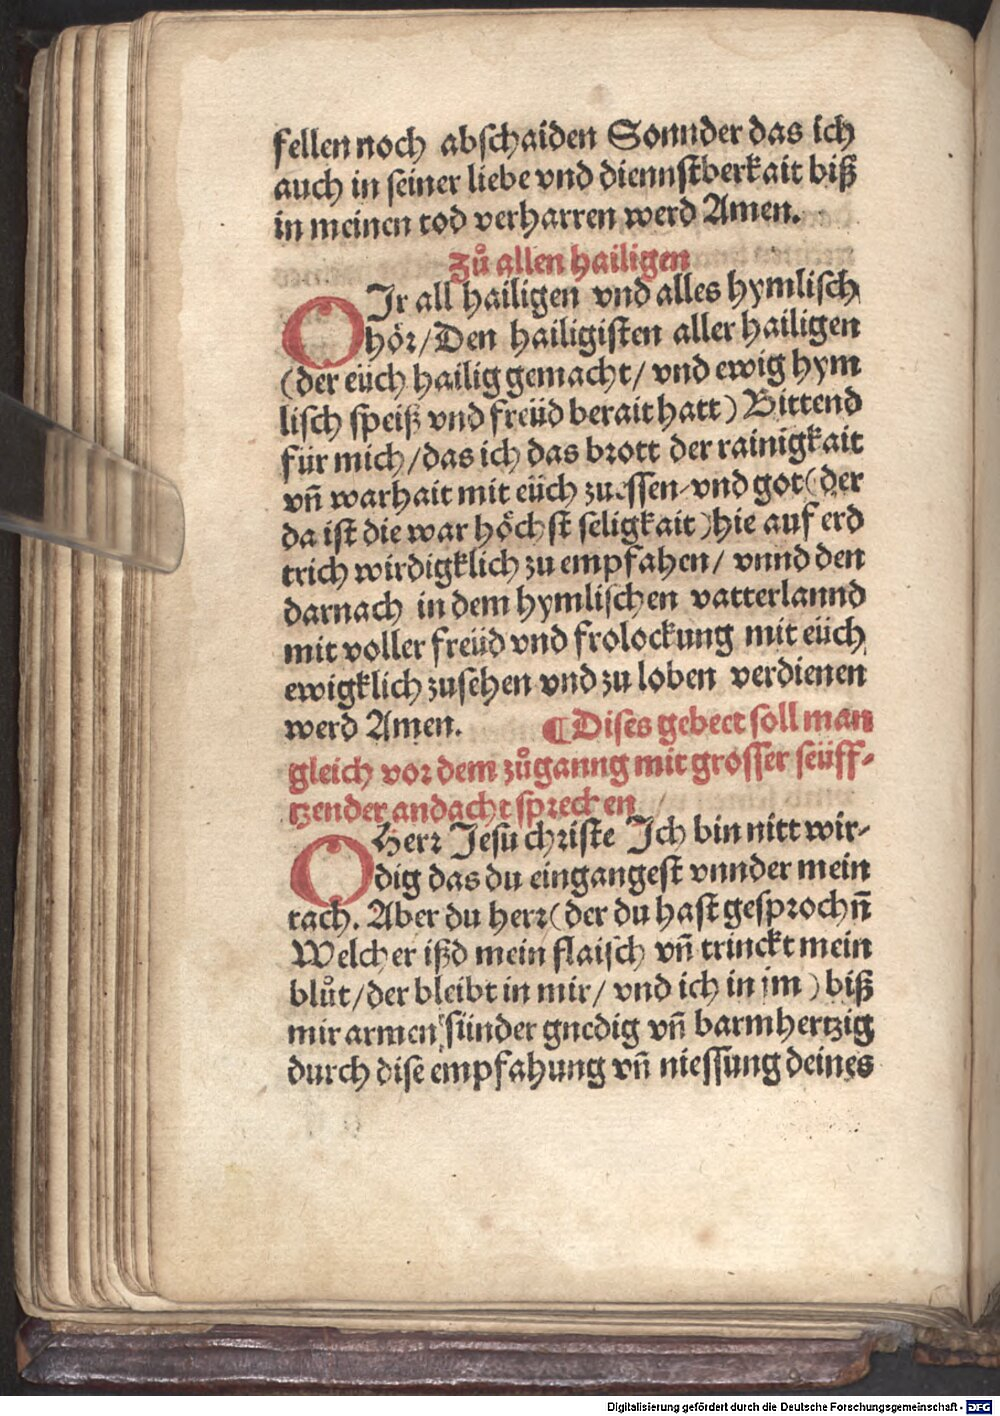 fellen noch abschaiden Sonnder das ich
auch in seiner liebe vnd diennstberkait biß
in meinen tod verharren werd Amen.
Zů allen hailigen
O Jr all hailigen vnd alles hymlisch
hör/Den hailigisten aller hailigen
(der eüch hailig gemacht/ vnd ewig hym
lisch speiß vnd freüd berait hatt) Bittend
für mich/das ich das brott der rainigkait
vn̄ warhait mit eüch zu essen vnd got (der
da ist die war höchst seligkait) hie auf erd
trich wirdigklich zu empfahen/ vnnd den
darnach in dem hymlischen vatterlannd
mit voller freüd vnd frolockung mit eüch
ewigklich zusehen vnd zu loben verdienen
werd Amen. ¶ Dises gebect soll man
gleich vor dem zůganng mit grosser seüff-
tzender andacht sprechen
O Herr Jesu christe Jch bin nitt wir-
dig das du eingangest vnnder mein
tach. Aber du herr (der du hast gesprochn̄
Welcher ißd mein flaisch vn̄ trinckt mein
blůt/der bleibt in mir/ vnd ich in jm) biß
mir armen sünder gnedig vn̄ barmhertzig
durch dise empfahung vn̄ niessung deines
Digitalisierung gefördert durch die Deutsche Forschungsgemeinschaft - DFG